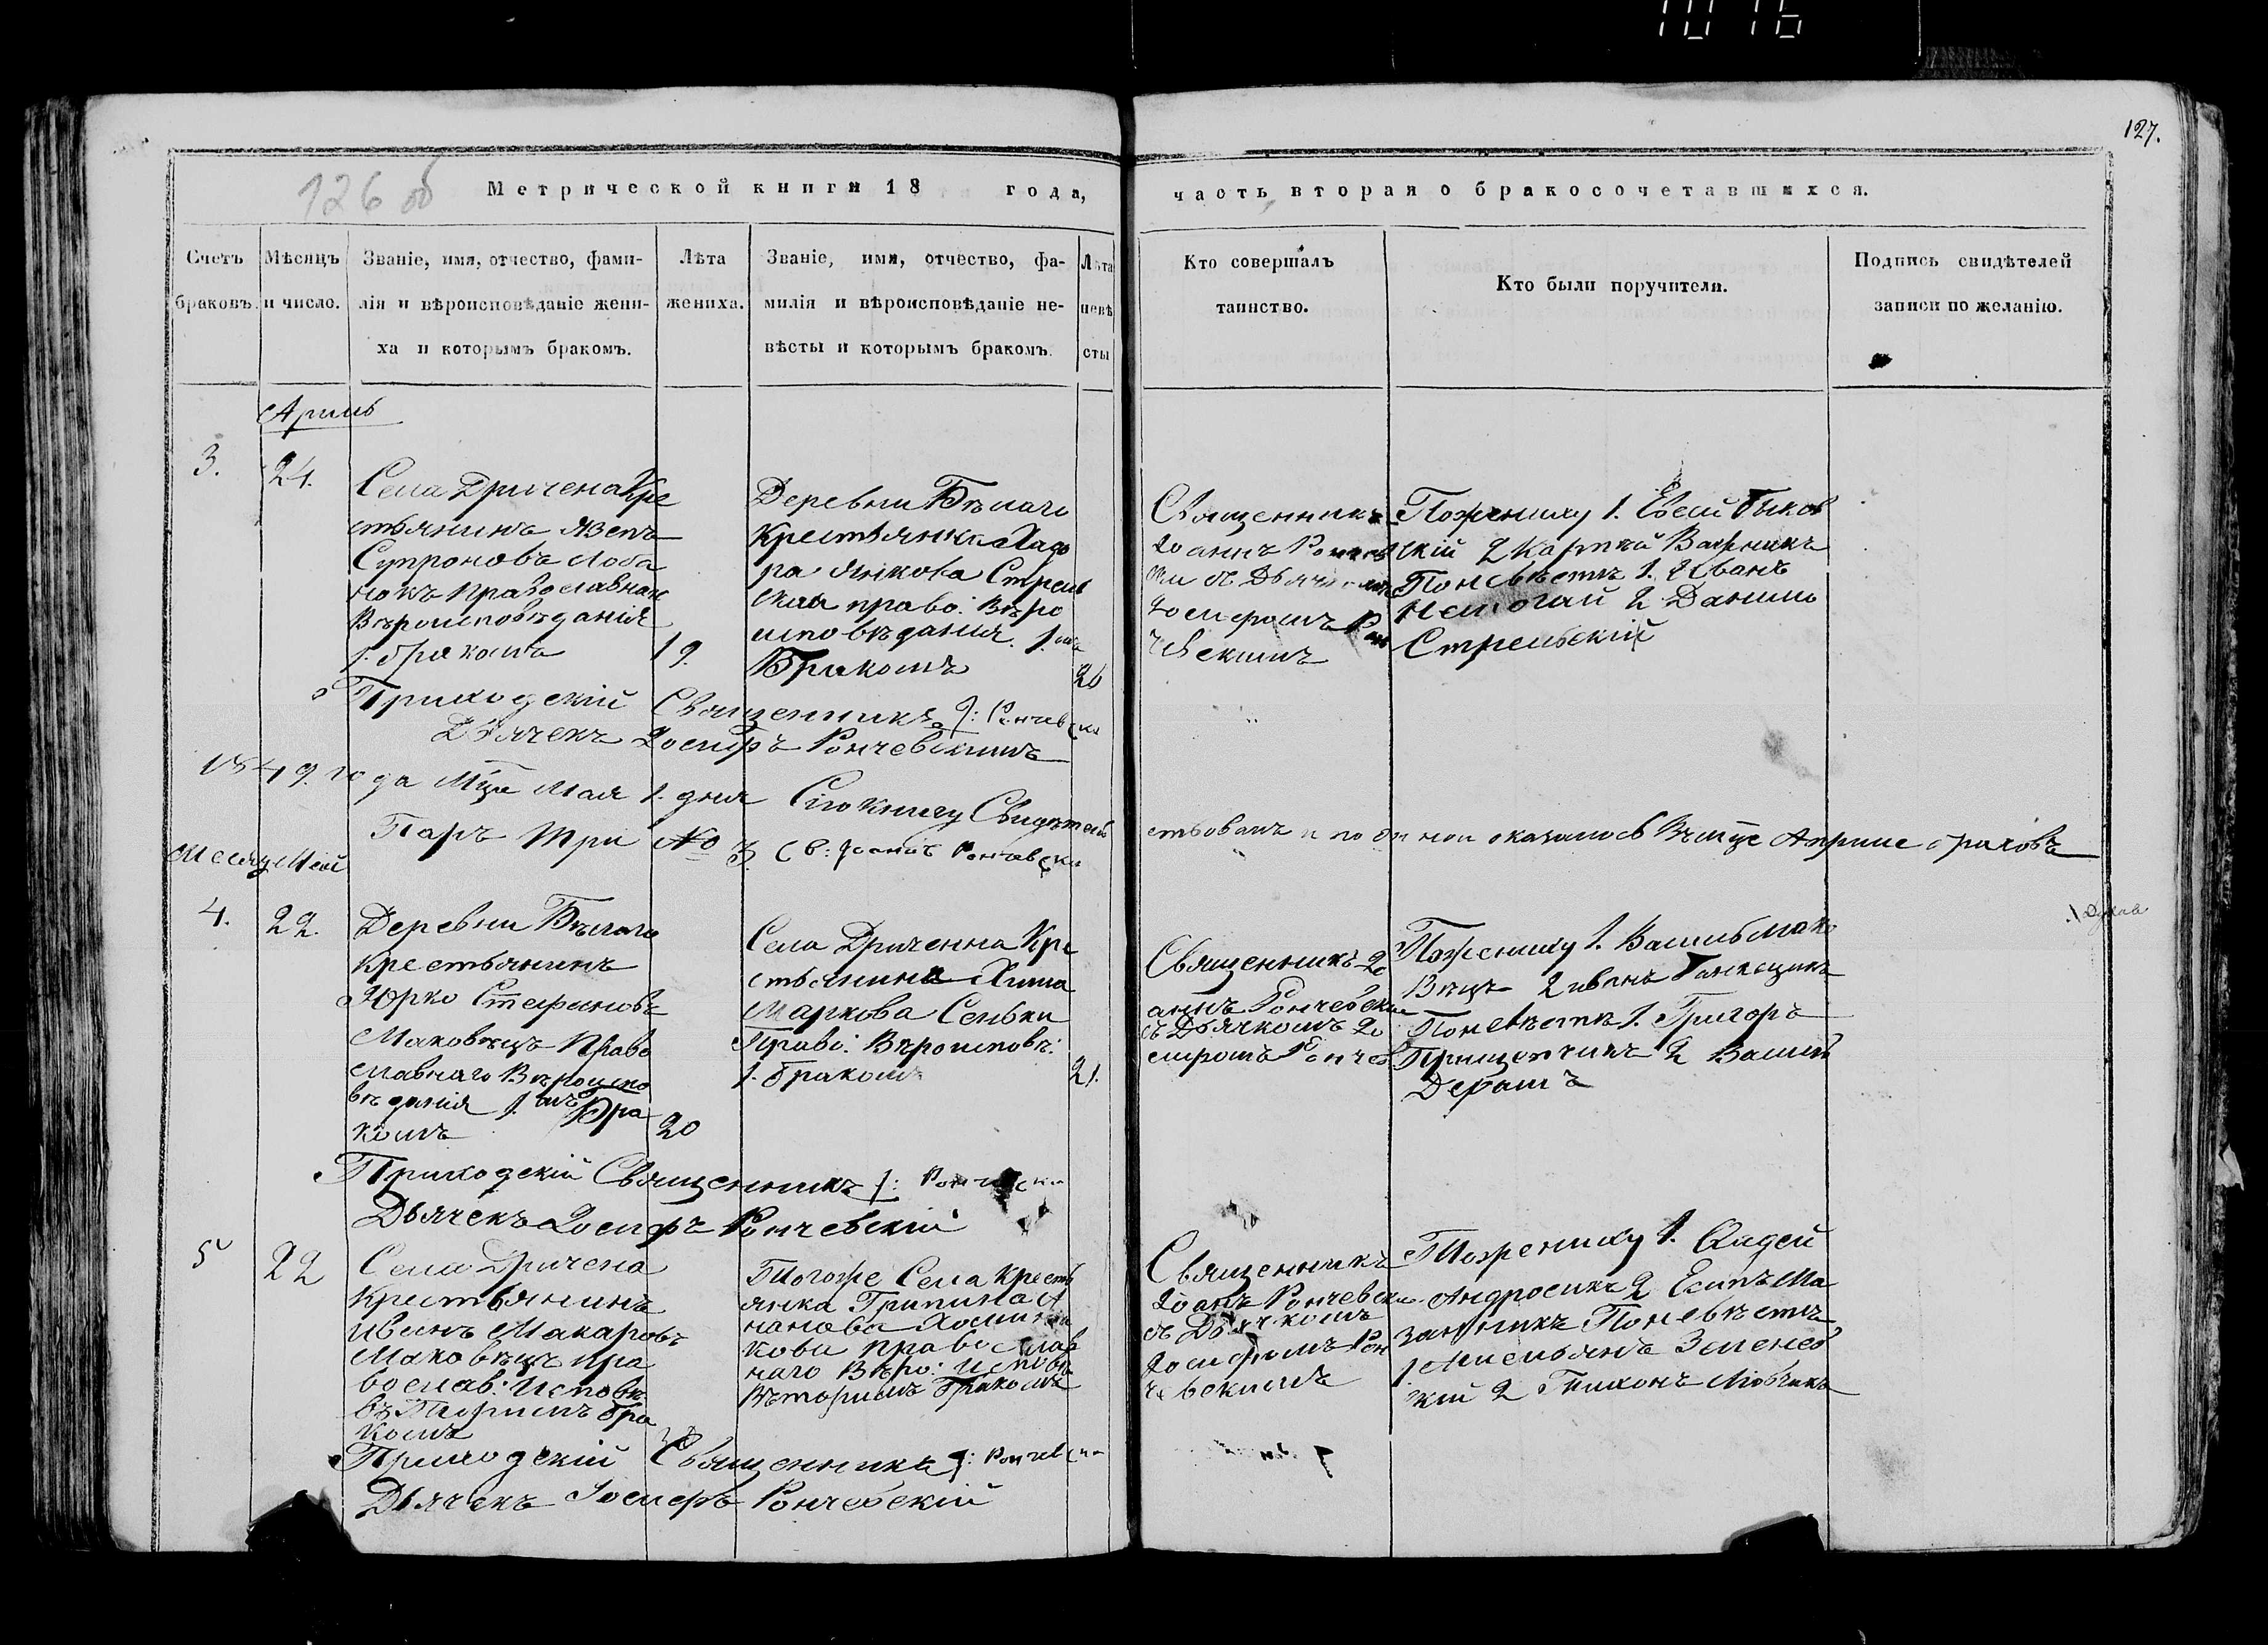 1016
127.
126 об
Метрической книги 18 года,
часть вторая о бракосочетавшихся.
Счетъ браковъ.
Мѣсяцъ и число.
Званіе, имя, отчество, фами-
лія и вѣроисповѣданіе жени-
ха и которымъ бракомъ.
Лѣта
жениха.
Званіе, имя, отчество, фа-
милія и вѣроисповѣданіе не-
вѣсты и которымъ бракомъ.
Лѣта
невѣ
сты
Кто совершалъ
таинство.
Кто были поручители.
Подпись свидѣтелей
записи по желанію.
Априль
3.
24.
Села Дричена Кре
стьянинъ Язепъ
Супроновъ Лоба
нокъ православнаго
Вѣроисповѣданія
1. бракомъ
19.
Деревни Бѣлаго
Крестьянка
ра Янкова Стрель
ская право: Вѣро
исповѣданія. 1.
Бракомъ
20
Священникъ
Іоаннъ
съ
Іосифомъ Рон
чевскимъ
Пожениху 1. Евсей Быков
скій 2 Карпей
Поневѣстѣ 1. Иванъ
2 Данило
Стрельскій
Приходскій Священникъ І: Рончевски
Дьячекъ Іосифъ Рончевскимъ
1849. года Мца Мая 1. дня Сію книгу Свидѣтель
ствовалъ и по оной оказалось Въ мце Априле браковъ
Паръ три № 3. Св: Іоаннъ Рончевски
Месяц Май
4.
22.
Деревни Бѣлаго
Крестьянинъ
Юрко Стефановъ
Маковѣцъ Право
славнаго Вѣроиспо
вѣданія 1. мъ Бра
комъ
20
Села Дриченна Кре
стьянина
Маркова Сеньки
Право: Вѣроисповѣ:
1. бракомъ
21.
Священникъ Іо
аннъ Рончевски
съ Дьячкомъ Іо
сифомъ Рончев
Пожениху 1. Василь Мако
Вѣцъ 2 иванъ
Поневѣстѣ 1. Григоръ
Прищепчикъ 2 Василь
Приходскій Священникъ І:
Дьячекъ Іосифъ Рончевскій
5
22
Села Дричена
Крестьянинъ
Иванъ Макаровъ
Маковѣцъ пра
вослав: Исповѣ
вторымъ бра
комъ
Тогоже Села Кресть
янка Грипина А
нанова
кова Православ
наго Вѣро: Исповѣ
Вторымъ Бракомъ
Священникъ
Іоанъ Рончевски
съ Дьячкомъ
Іосифомъ Рон
чевскимъ
Пожениху 1. Авдей
Андросикъ 2 Есипъ Ма
Поневѣстѣ
1 Зеленев
кій 2 Тихонъ
Приходскій Священникъ І: Рончевски
Дьячекъ Іосифъ Рончевскій